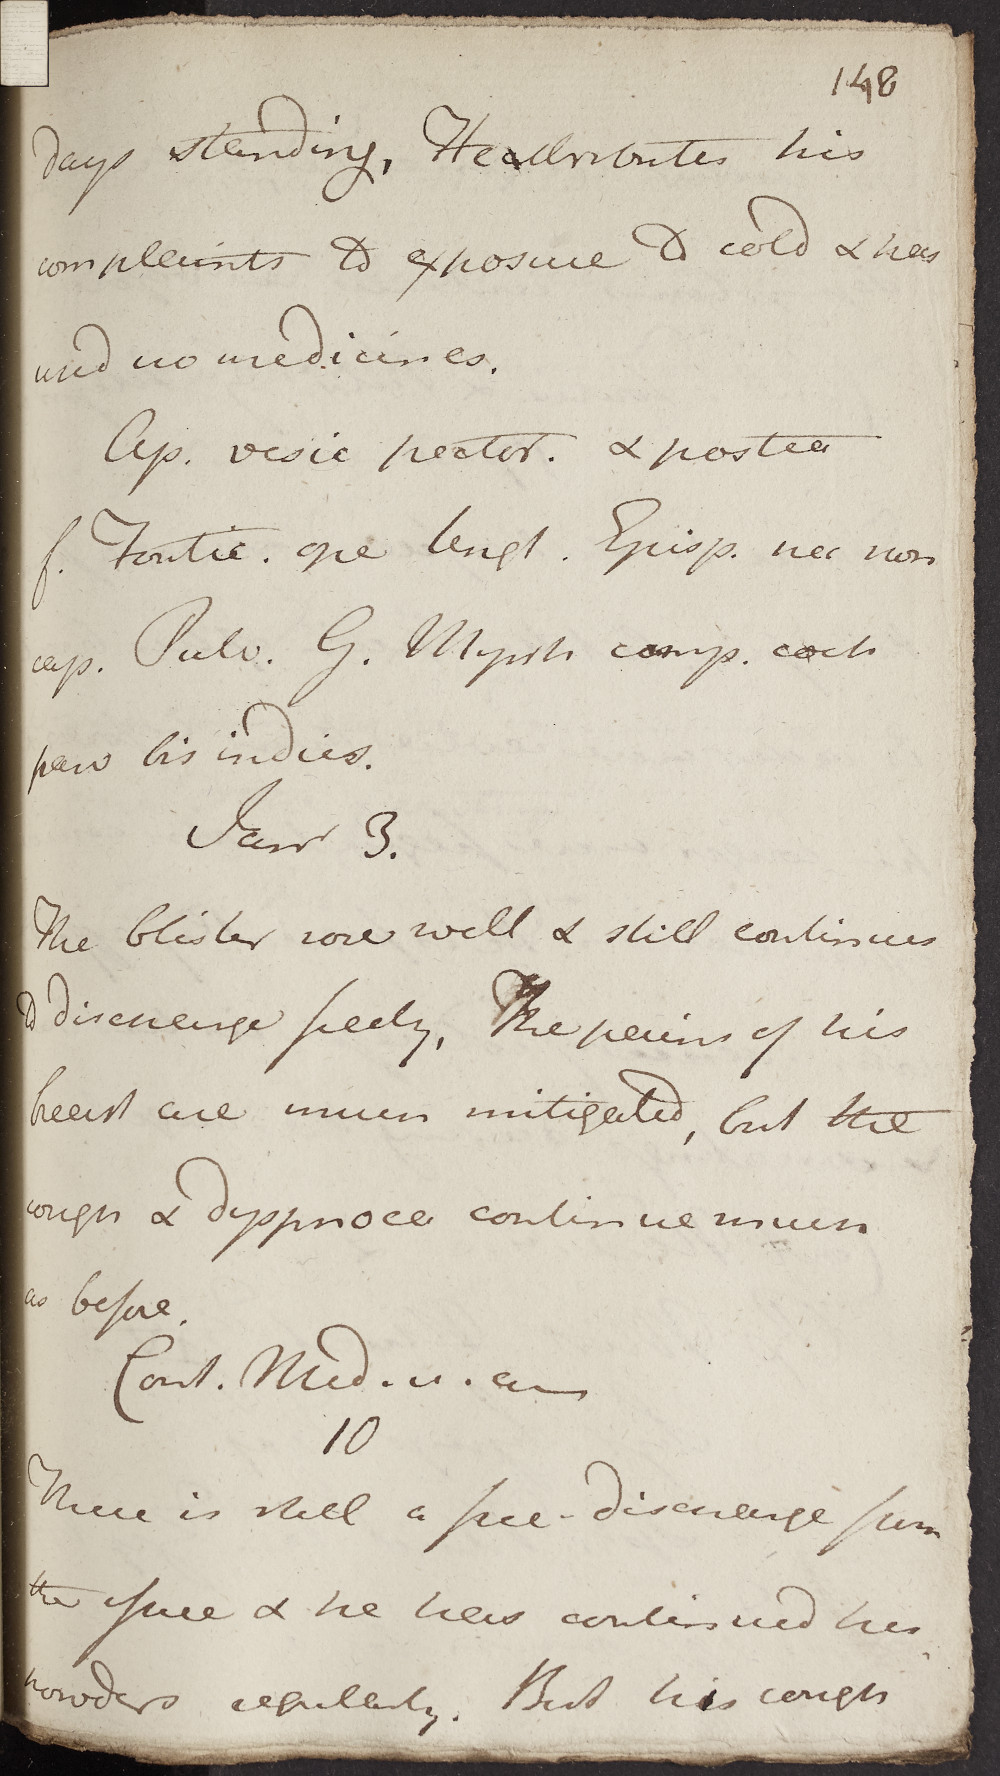 148
days standing, He attributes his
complaints to exposure to cold & has
used no medicines.
Ap. vesic pector. & postea
f. Fontic. ope Ungt. Episp. nec non
cap. Pulv. G. Myrrh comp. coch
parv bis indies.
Janr 3.
The blister rose well & still continues
to discharge freely, The pains of his
breast are much mitigated, but the
cough & dyspnoea continue much
as before.
Cont. Med. u. a
10
There is still a free discharge from
the issue & he has continued his
powders regularly. But his cough